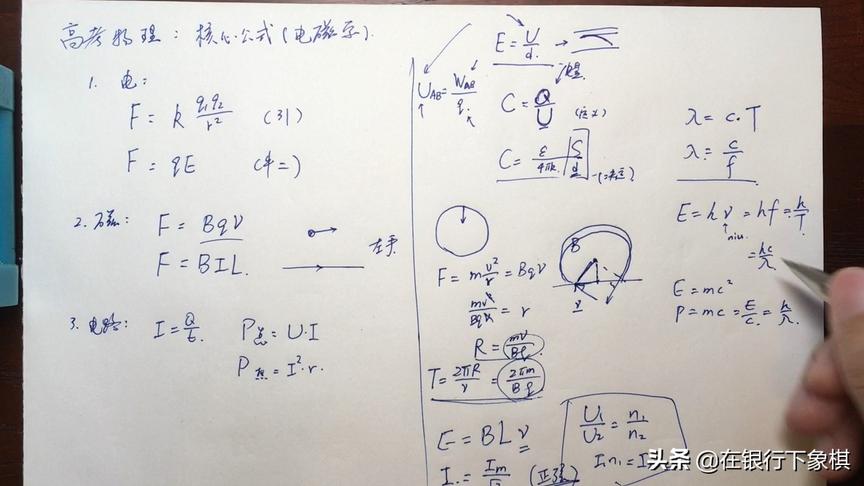 高考物理：核心公式(电磁学).
1. 电：
F = k q₁q₂/r² (引)
F = qE (牛二)
2. 磁：
F = BqV
F = BIL. 左手
3. 电路： I = Q/t. P总 = U·I
P热 = I²·r.
E = U/d. →
U_AB = W_AB/q.
C = Q/U (定义)
C = ε/4πk | S/d
F = m v²/r = BqV
mv²/BqV = r
B
R = mv/Bq.
T = 2πR/v = 2πm/Bq
E = BLv
U₁/U₂ = n₁/n₂
I₁n₁ = I
I = Im
λ = c·T
λ = c/f
E = hν = hf = h/T
niu
= hc/λ
E = mc²
P = mc = E/c = h/λ.
头条 @在银行下象棋